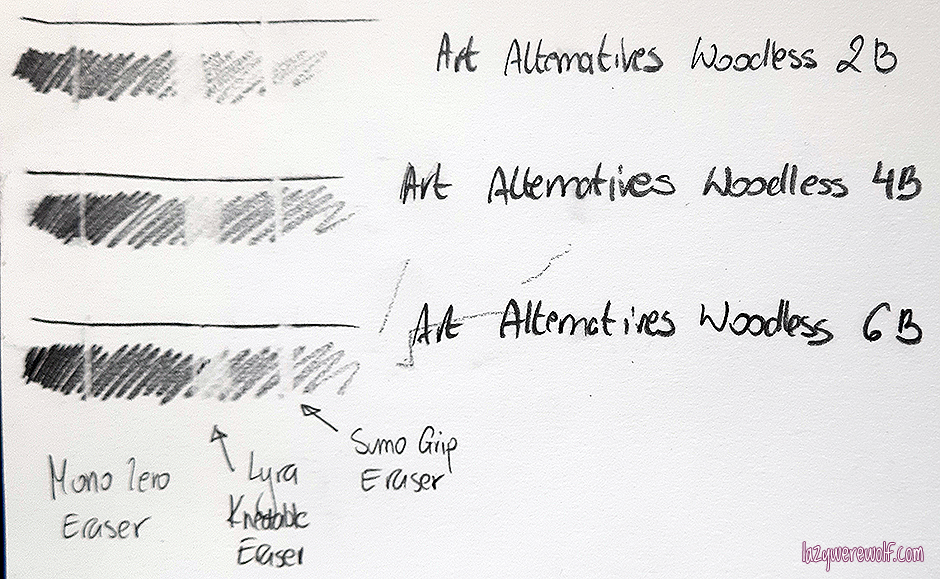 Art Alternatives Woodless 2B
Art Alternatives Woodless 4B
Art Alternatives Woodless 6B
Mono Zero
Eraser
Lyra
Kneadable
Eraser
Sumo Grip
Eraser
lazywerewolf.com